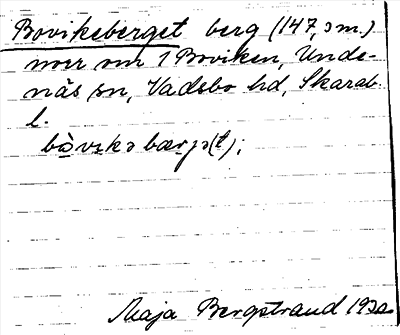 Bovikeberget berg (147,3 m.)
norr om 1 Boviken, Unde-
näs sn, Vadsbo hd, Skarab.
l.
bòvikə bærjə(t);
Maja Bergstrand 1932